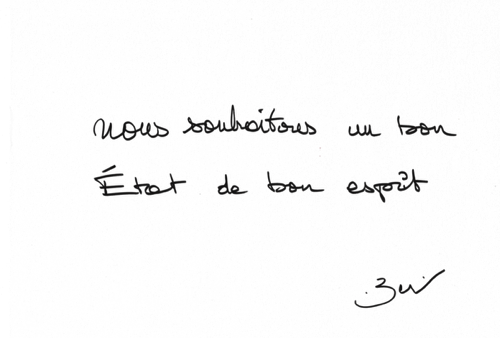 nous souhaitons un bon
État de bon esprit